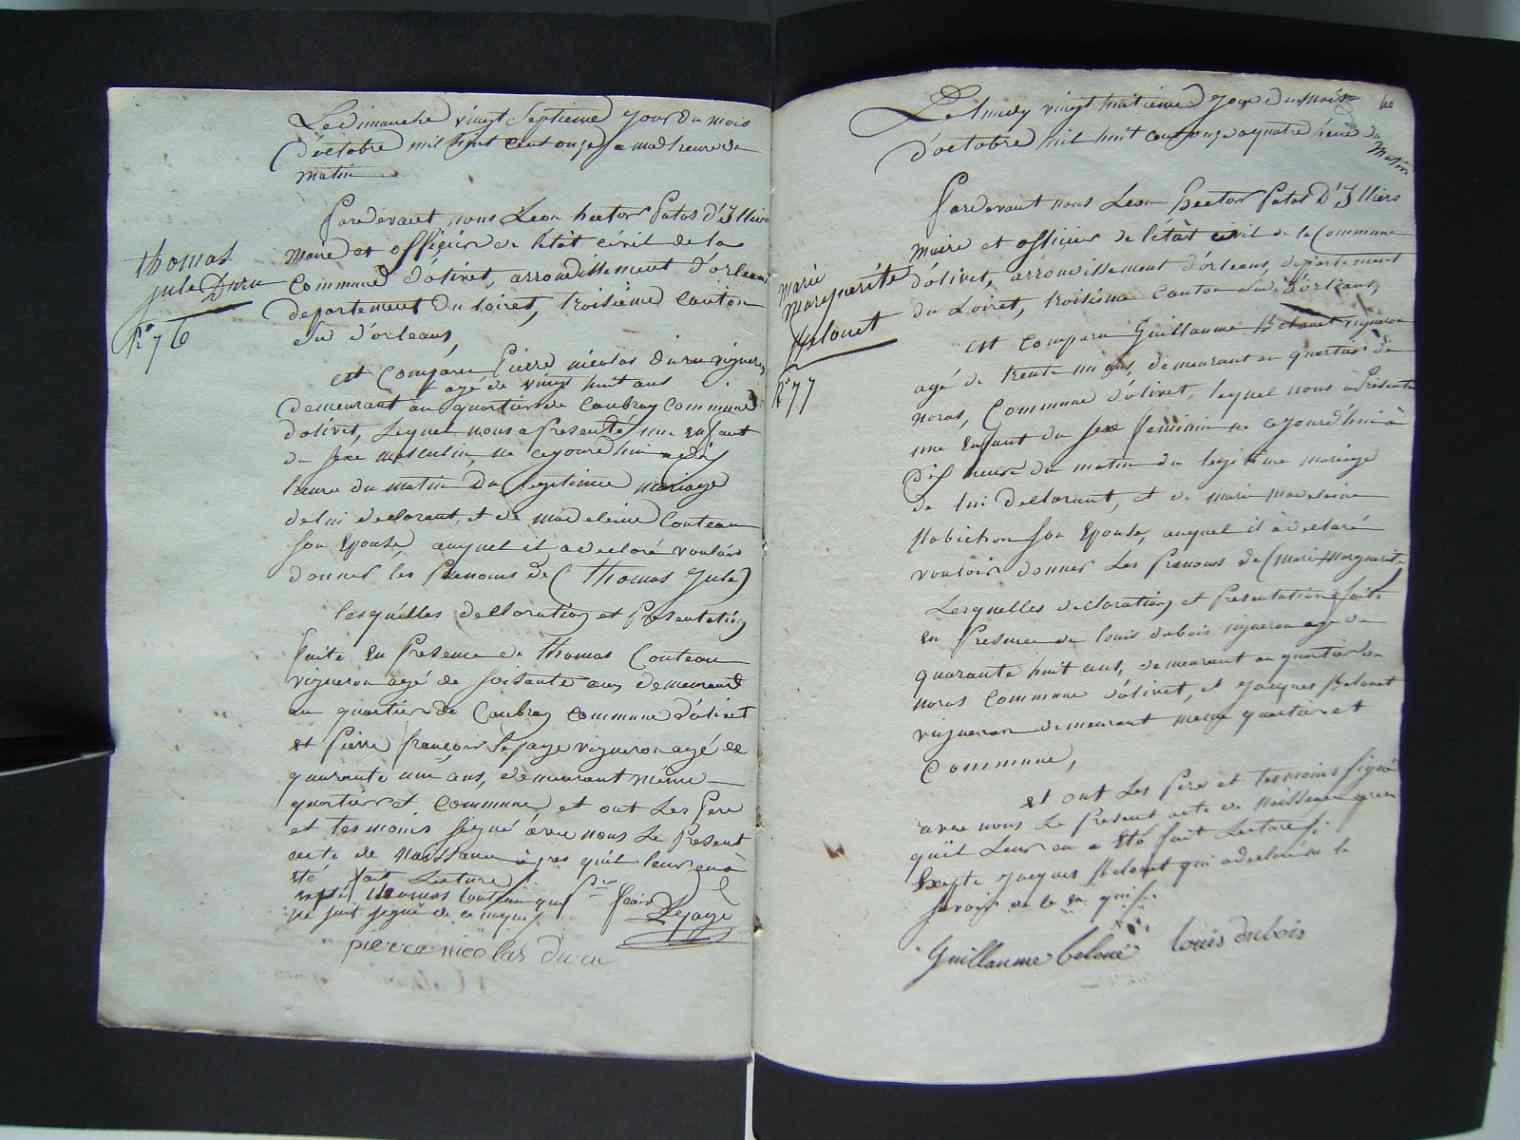 Le dimanche vingt Septieme Jour du mois
d'octobre mil huit cent onze a heure du
matin
pardevant nous Léon hector Patas d'Illiers
maire et officier de l'état civil de la
Commune d'olivet, arrondissement d'orleans
departement du Loiret, troisième Canton
Sud d'orleans,
thomas
Jule Duru
N° 76
est Comparu Pierre nicolas duru vigneron
agé de vingt huit ans
demeurant au quartier de Caubray Commune
d'olivet, Lequel nous a presenté une Enfant
du sexe masculin, né cejourd'hui a dix
heure du matin du legitime mariage
de lui declarant, et de madeleine Couteau
son Epouse, auquel il a declaré vouloir
donner les prenoms de (Thomas Jule)
lesquelles declaration et presentation
faite en presence de Thomas Couteau
vigneron agé de soixante ans demeurant
au quartier de Caubray commune d'olivet
et pierre françois Lepage vigneron agé de
quarante un ans, demeurant même
quartier et commune, et ont Les Pere
et tesmoins signé avec nous Le present
acte de Naissance après quil leur en a
eté fait Lecture
Thomas Couteau qui
ne sait signé de ce enquis
Lepage
pierre nicolas duru
60
Le lundy vingt huitieme Jour du mois
d'octobre mil huit cent onze a quatre heure du
matin
Pardevant nous Léon hector Patas D'Illiers
maire et officier de l'état civil de la Commune
d'olivet, arrondissement d'orleans, departement
du Loiret, troisième canton Sud d'orleans,
Marie
Marguerité
Belouet
N° 77
est comparu Guillaume Belouet vigneron
agé de trente un ans, demeurant au quartier de
noras, Commune d'olivet, lequel nous a Presenté
une Enfant du sexe feminin né cejourd'hui à
dix heure du matin du legitime mariage
de lui declarant, et de marie madeleine
Robichon son Epouse, auquel il a declaré
vouloir donner Les prenoms de (marie Marguerite
Lesquelles declaration et presentation faite
en presence de louis dubois vigneron agé de
quarante huit ans, demeurant au quartier de
noras commune d'olivet, et Jacques Belouet
vigneron demeurant même quartier et
Commune,
et ont Les Pere et tesmoins signé
avec nous Le present acte de Naissance
qu'il Leur en a eté fait Lecture
Excepte Jacques Belouet qui a declaré ne le
savoir de ce en quis
Guillaume beloué louis dubois